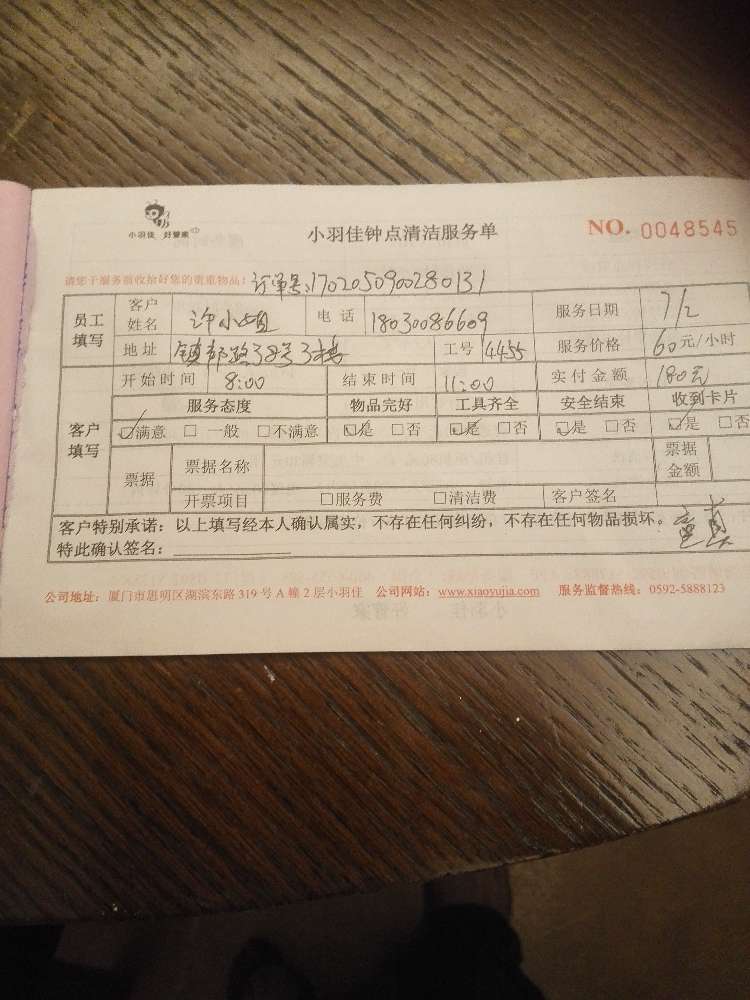 小羽佳 好管家
小羽佳钟点清洁服务单
NO. 0048545
请您于服务前收拾好您的贵重物品: 订单号:170205090280131
员工填写 客户姓名 许小姐 电话 18030086609 服务日期 7/2
地址 镇邦路38号3楼 工号 4455 服务价格 60元/小时
客户填写 开始时间 8:00 结束时间 11:00 实付金额 180元
服务态度 物品完好 工具齐全 安全结束 收到卡片
☑满意 □一般 □不满意 ☑是 □否 ☑是 □否 ☑是 □否 ☑是 □否
票据 票据名称 票据金额
开票项目 □服务费 □清洁费 客户签名
客户特别承诺:以上填写经本人确认属实,不存在任何纠纷,不存在任何物品损坏。
特此确认签名:
公司地址:厦门市思明区湖滨东路 319 号 A 幢 2 层小羽佳 公司网站:www.xiaoyujia.com 服务监督热线:0592-5888123